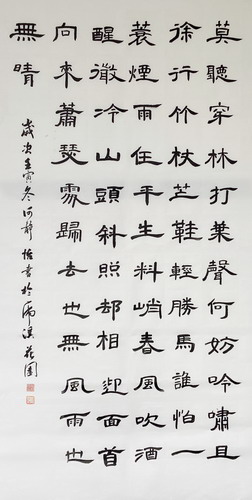 莫聽穿林打葉聲何妨吟嘯且
徐行竹杖芒鞋輕勝馬誰怕一
蓑煙雨任平生料峭春風吹酒
醒微冷山頭斜照却相迎回首
向來蕭瑟處歸去也無風雨也
無晴
歲次壬寅冬河靜